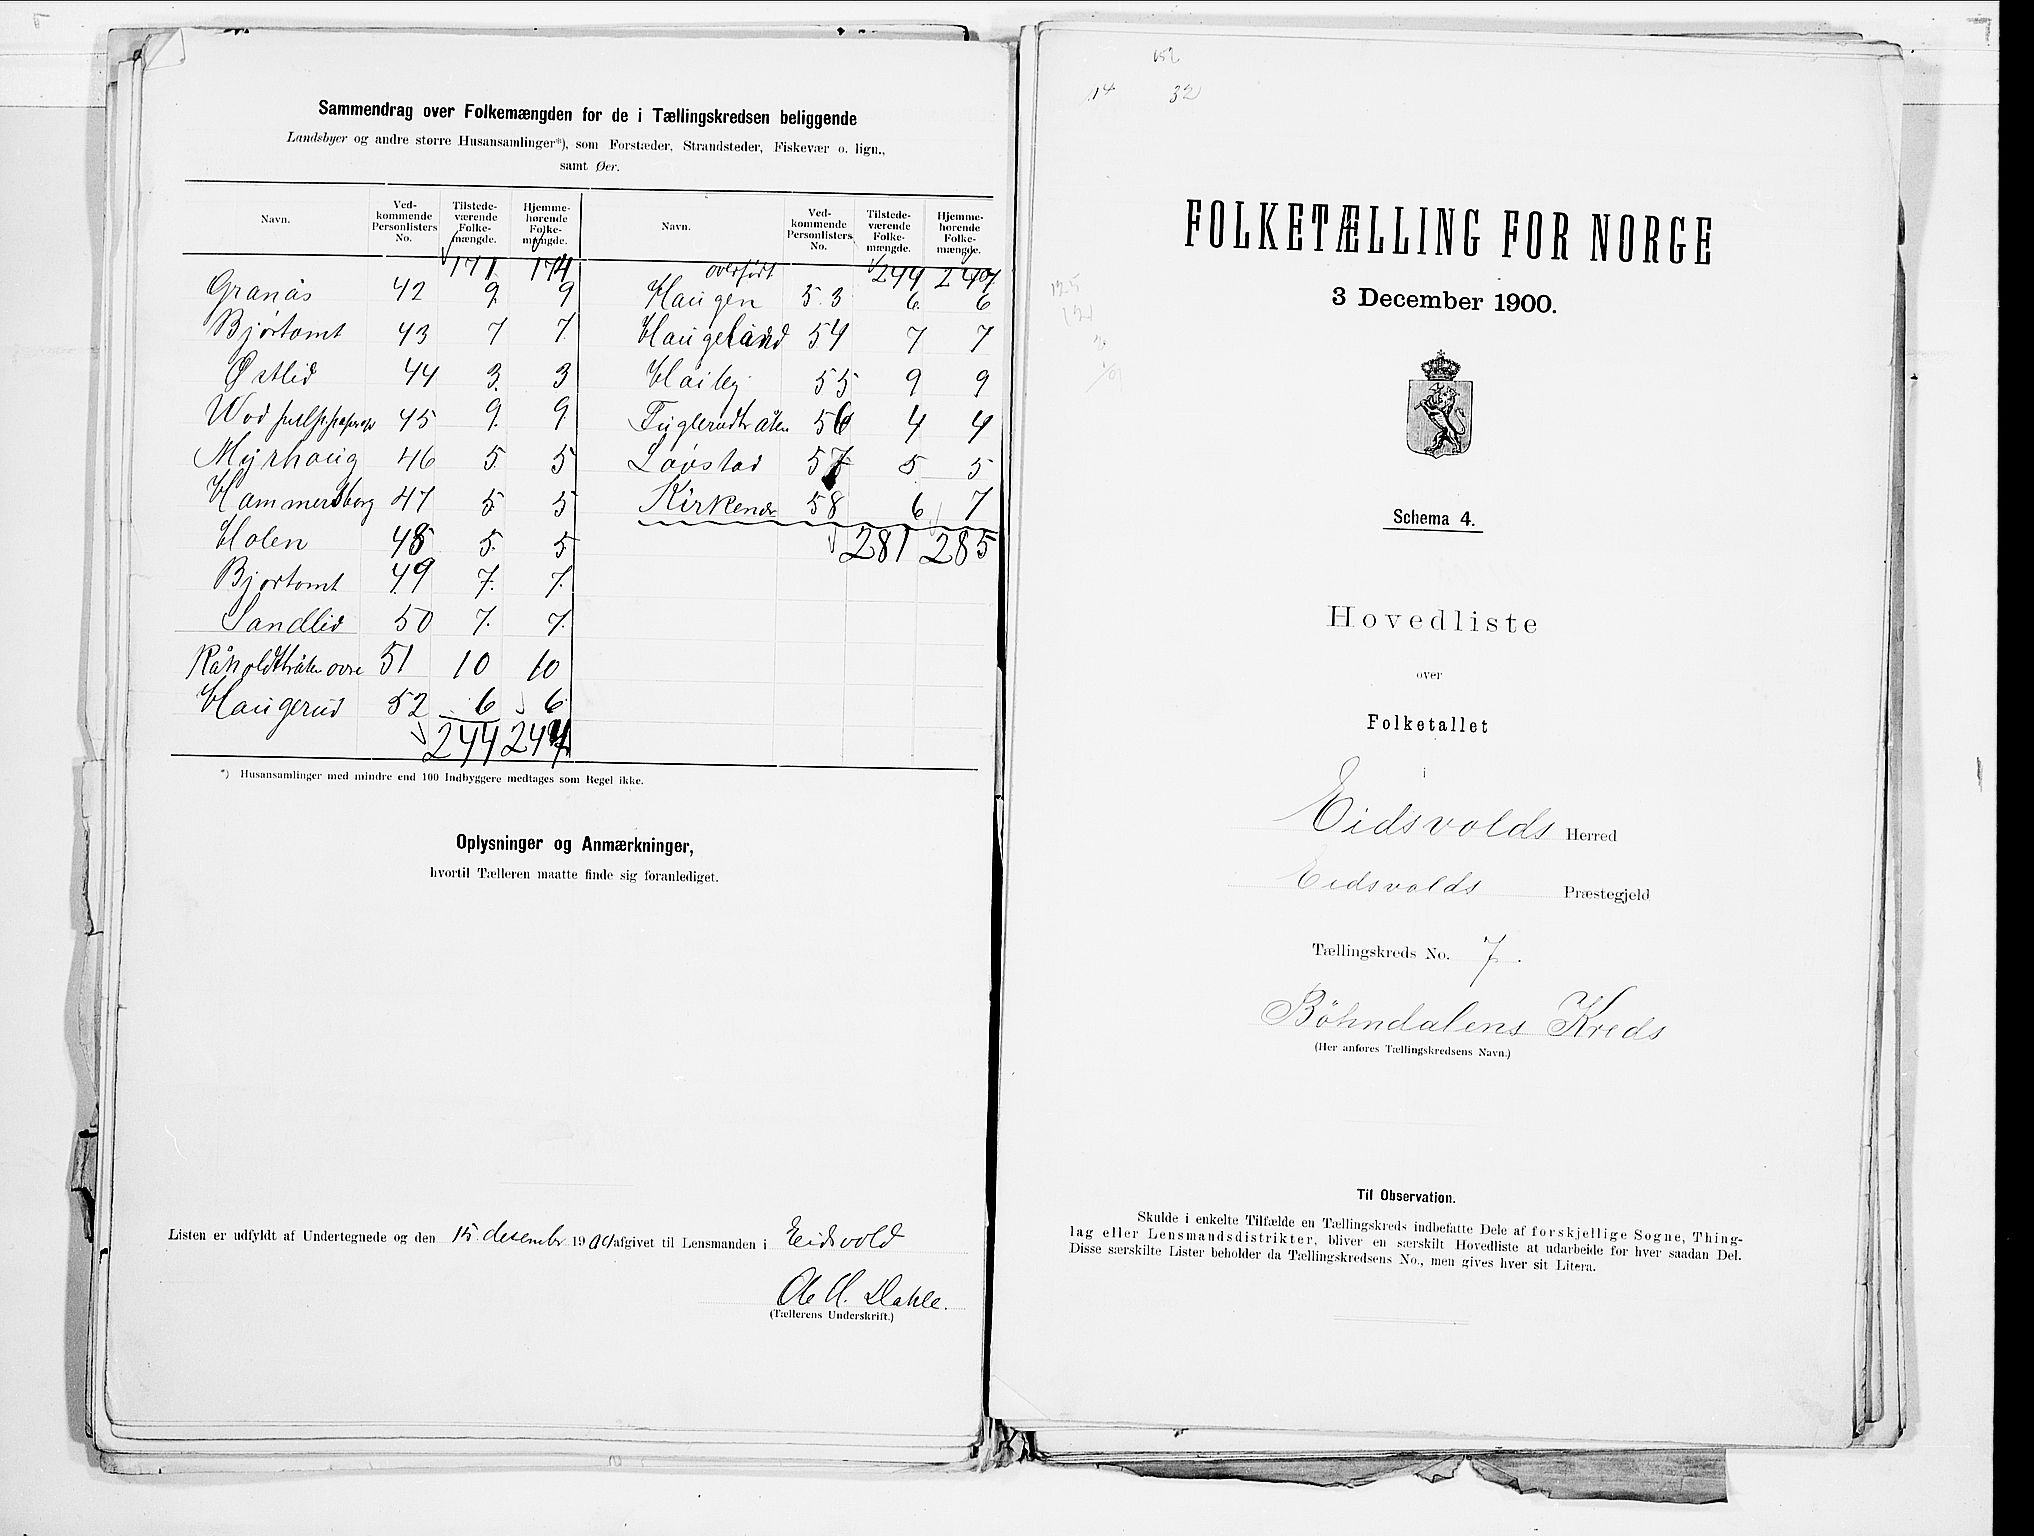 Sammendrag over Folkemængden for de i Tællingskredsen beliggende
Landsbyer og andre større Husansamlinger*), som Forstæder, Strandsteder, Fiskevær o. lign.,
samt Øer.
Navn. Vedkommende Personlisters No. Tilstedeværende Folkemængde. Hjemmehørende Folkemængde.
171 174
Granås 42 9 9
Bjørtomt 43 7 7
Østlid 44 3 3
45 9 9
Myrhoug 46 5 5
Hammersborg 47 5 5
Holen 48 5 5
Bjørtomt 49 7 7
Sandlid 50 7 7
Råholdtråten ovre 51 10 10
Haugerud 52 6 6
244 247
Navn. Vedkommende Personlisters No. Tilstedeværende Folkemængde. Hjemmehørende Folkemængde.
overført 244 247
Haugen 53 6 6
Haugeland 54 7 7
55 9 9
Fuglerudtråten 56 4 4
Lovstad 57 5 5
58 6 7
281 285
*) Husansamlinger med mindre end 100 Indbyggere medtages som Regel ikke.
Oplysninger og Anmærkninger,
hvortil Tælleren maatte finde sig foranlediget.
Listen er udfyldt af Undertegnede og den 15 desembr 1900 afgivet til Lensmanden i Eidsvold
Ole H. Dahle.
(Tællerens Underskrift.)
152
14 32
FOLKETÆLLING FOR NORGE
3 December 1900.
Schema 4.
Hovedliste
over
Folketallet
i
Eidsvolds Herred
Eidsvolds Præstegjeld
Tællingskreds No. 7.
Böhndalens Kreds
(Her anføres Tællingskredsens Navn.)
Til Observation.
Skulde i enkelte Tilfælde en Tællingskreds indbefatte Dele af forskjellige Sogne, Thing-
lag eller Lensmandsdistrikter, bliver en særskilt Hovedliste at udarbeide for hver saadan Del.
Disse særskilte Lister beholder da Tællingskredsens No., men gives hver sit Litera.